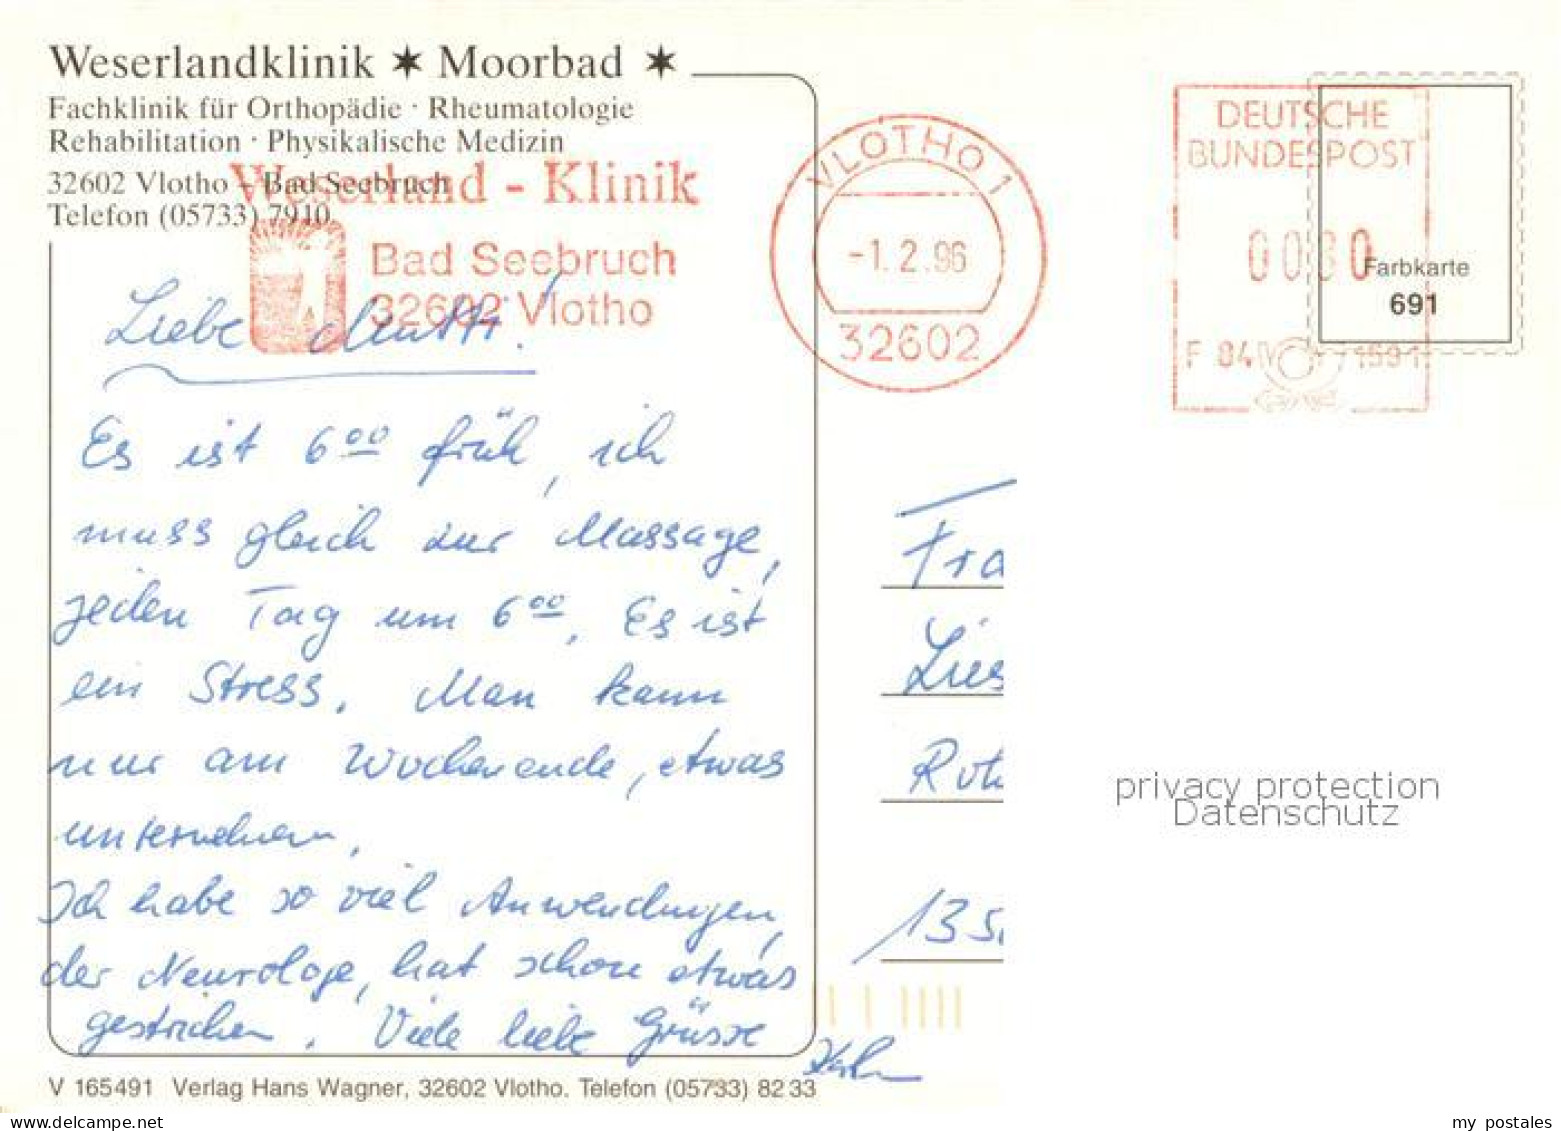 Weserlandklinik ✶ Moorbad ✶
Fachklinik für Orthopädie · Rheumatologie
Rehabilitation · Physikalische Medizin
32602 Vlotho – Bad Seebruch
Telefon (05733) 7910.
Weserland - Klinik
Bad Seebruch
32602 Vlotho
VLOTHO 1
-1.2.96
32602
DEUTSCHE
BUNDESPOST
0080
F 84 1591
Farbkarte
691
Liebe Mutti!
Es ist 6⁰⁰ früh, ich
muss gleich zur Massage,
jeden Tag um 6⁰⁰. Es ist
ein Stress. Man kann
nur am Wochenende, etwas
unternehmen.
Ich habe so viel Anwendungen,
der Neurologe, hat schon etwas
gestrichen. Viele liebe Grüsse
Fra
Lies
Rot
135
privacy protection
Datenschutz
V 165491 Verlag Hans Wagner, 32602 Vlotho. Telefon (05733) 82 33
www.delcampe.net
my_postales